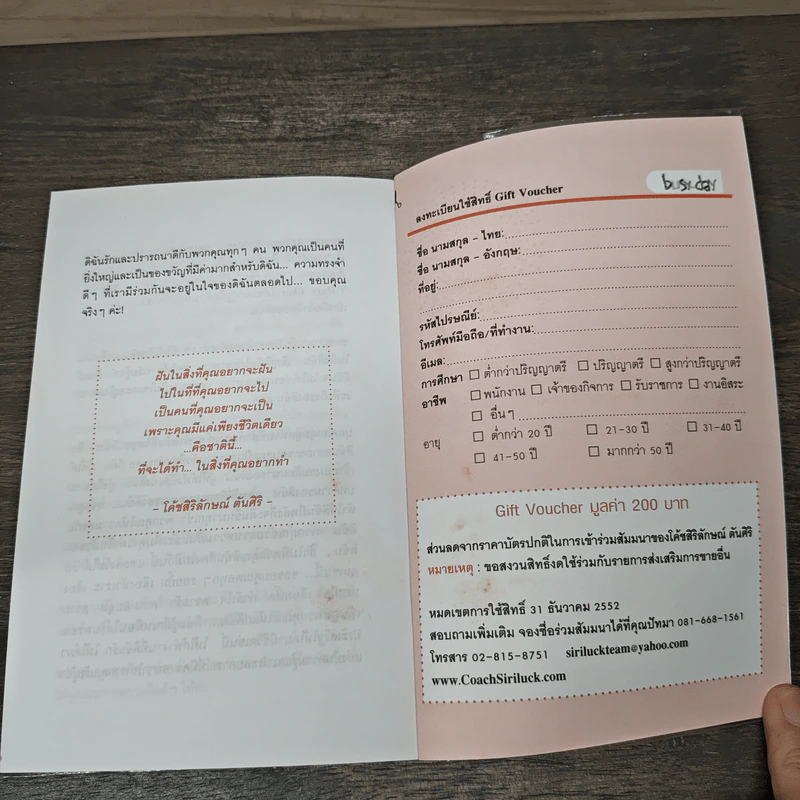 ดิฉันรักและปรารถนาดีกับพวกคุณทุกๆ คน พวกคุณเป็นคนที่
ยิ่งใหญ่และเป็นของขวัญที่มีค่ามากสำหรับดิฉัน... ความทรงจำ
ดีๆ ที่เรามีร่วมกันจะอยู่ในใจของดิฉันตลอดไป... ขอบคุณ
จริงๆ ค่ะ!
ฝันในสิ่งที่คุณอยากจะฝัน
ไปในที่ที่คุณอยากจะไป
เป็นคนที่คุณอยากจะเป็น
เพราะคุณมีแค่เพียงชีวิตเดียว
...คือชาตินี้...
ที่จะได้ทำ... ในสิ่งที่คุณอยากทำ
– โค้ชสิริลักษณ์ ตันศิริ –
busy-day
ลงทะเบียนใช้สิทธิ์ Gift Voucher
ชื่อ นามสกุล - ไทย:
ชื่อ นามสกุล - อังกฤษ:
ที่อยู่:
รหัสไปรษณีย์:
โทรศัพท์มือถือ/ที่ทำงาน:
อีเมล:
การศึกษา ☐ ต่ำกว่าปริญญาตรี ☐ ปริญญาตรี ☐ สูงกว่าปริญญาตรี
อาชีพ ☐ พนักงาน ☐ เจ้าของกิจการ ☐ รับราชการ ☐ งานอิสระ
☐ อื่นๆ
อายุ ☐ ต่ำกว่า 20 ปี ☐ 21-30 ปี ☐ 31-40 ปี
☐ 41-50 ปี ☐ มากกว่า 50 ปี
Gift Voucher มูลค่า 200 บาท
ส่วนลดจากราคาบัตรปกติในการเข้าร่วมสัมมนาของโค้ชสิริลักษณ์ ตันศิริ
หมายเหตุ : ขอสงวนสิทธิ์งดใช้ร่วมกับรายการส่งเสริมการขายอื่น
หมดเขตการใช้สิทธิ์ 31 ธันวาคม 2552
สอบถามเพิ่มเติม จองชื่อร่วมสัมมนาได้ที่คุณปัทมา 081-668-1561
โทรสาร 02-815-8751 siriluckteam@yahoo.com
www.CoachSiriluck.com